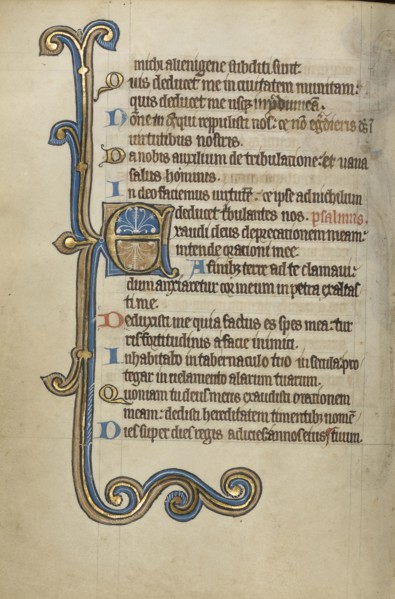 michi alienigene subditi sunt.
Quis deducet me in ciuitatem munitam:
quis deducet me usq; in ydumea.
Nonne tu qui repulisti nos: et no egdieris
uirtutibus nostris.
Da nobis auxilium de tribulatione: et uana
salus hominis.
In deo faciemus uirtute: et ipse ad nichilum
deducet tbulantes nos. psalmus.
Exaudi deus deprecationem meam:
intende orationi mee.
A finib; terre ad te clamaui:
dum anxiaretur cor meum in petra exaltas
ti me.
Deduxisti me quia factus es spes mea: tur
ris fortitudinis a facie inimici.
Inhabitabo in tabernaculo tuo in secula: pro
tegar in uelamento alarum tuarum.
Quoniam tu deus meus exaudisti orationem
meam: dedisti hereditatem timentib; nomen
Dies super dies regis adicies: annos eius tuum.